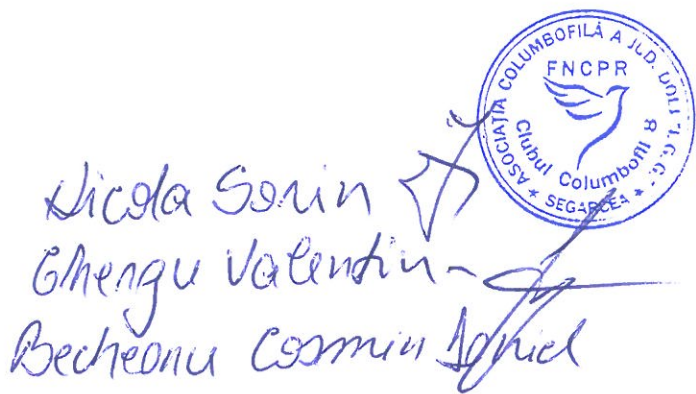 ASOCIAȚIA COLUMBOFILĂ A JUD. DOLJ "I.G.G."
FNCPR
Clubul Columbofil 8
★ SEGARCEA ★
Nicola Sorin
Ghengu Valentin
Becheanu Cosmin Daniel